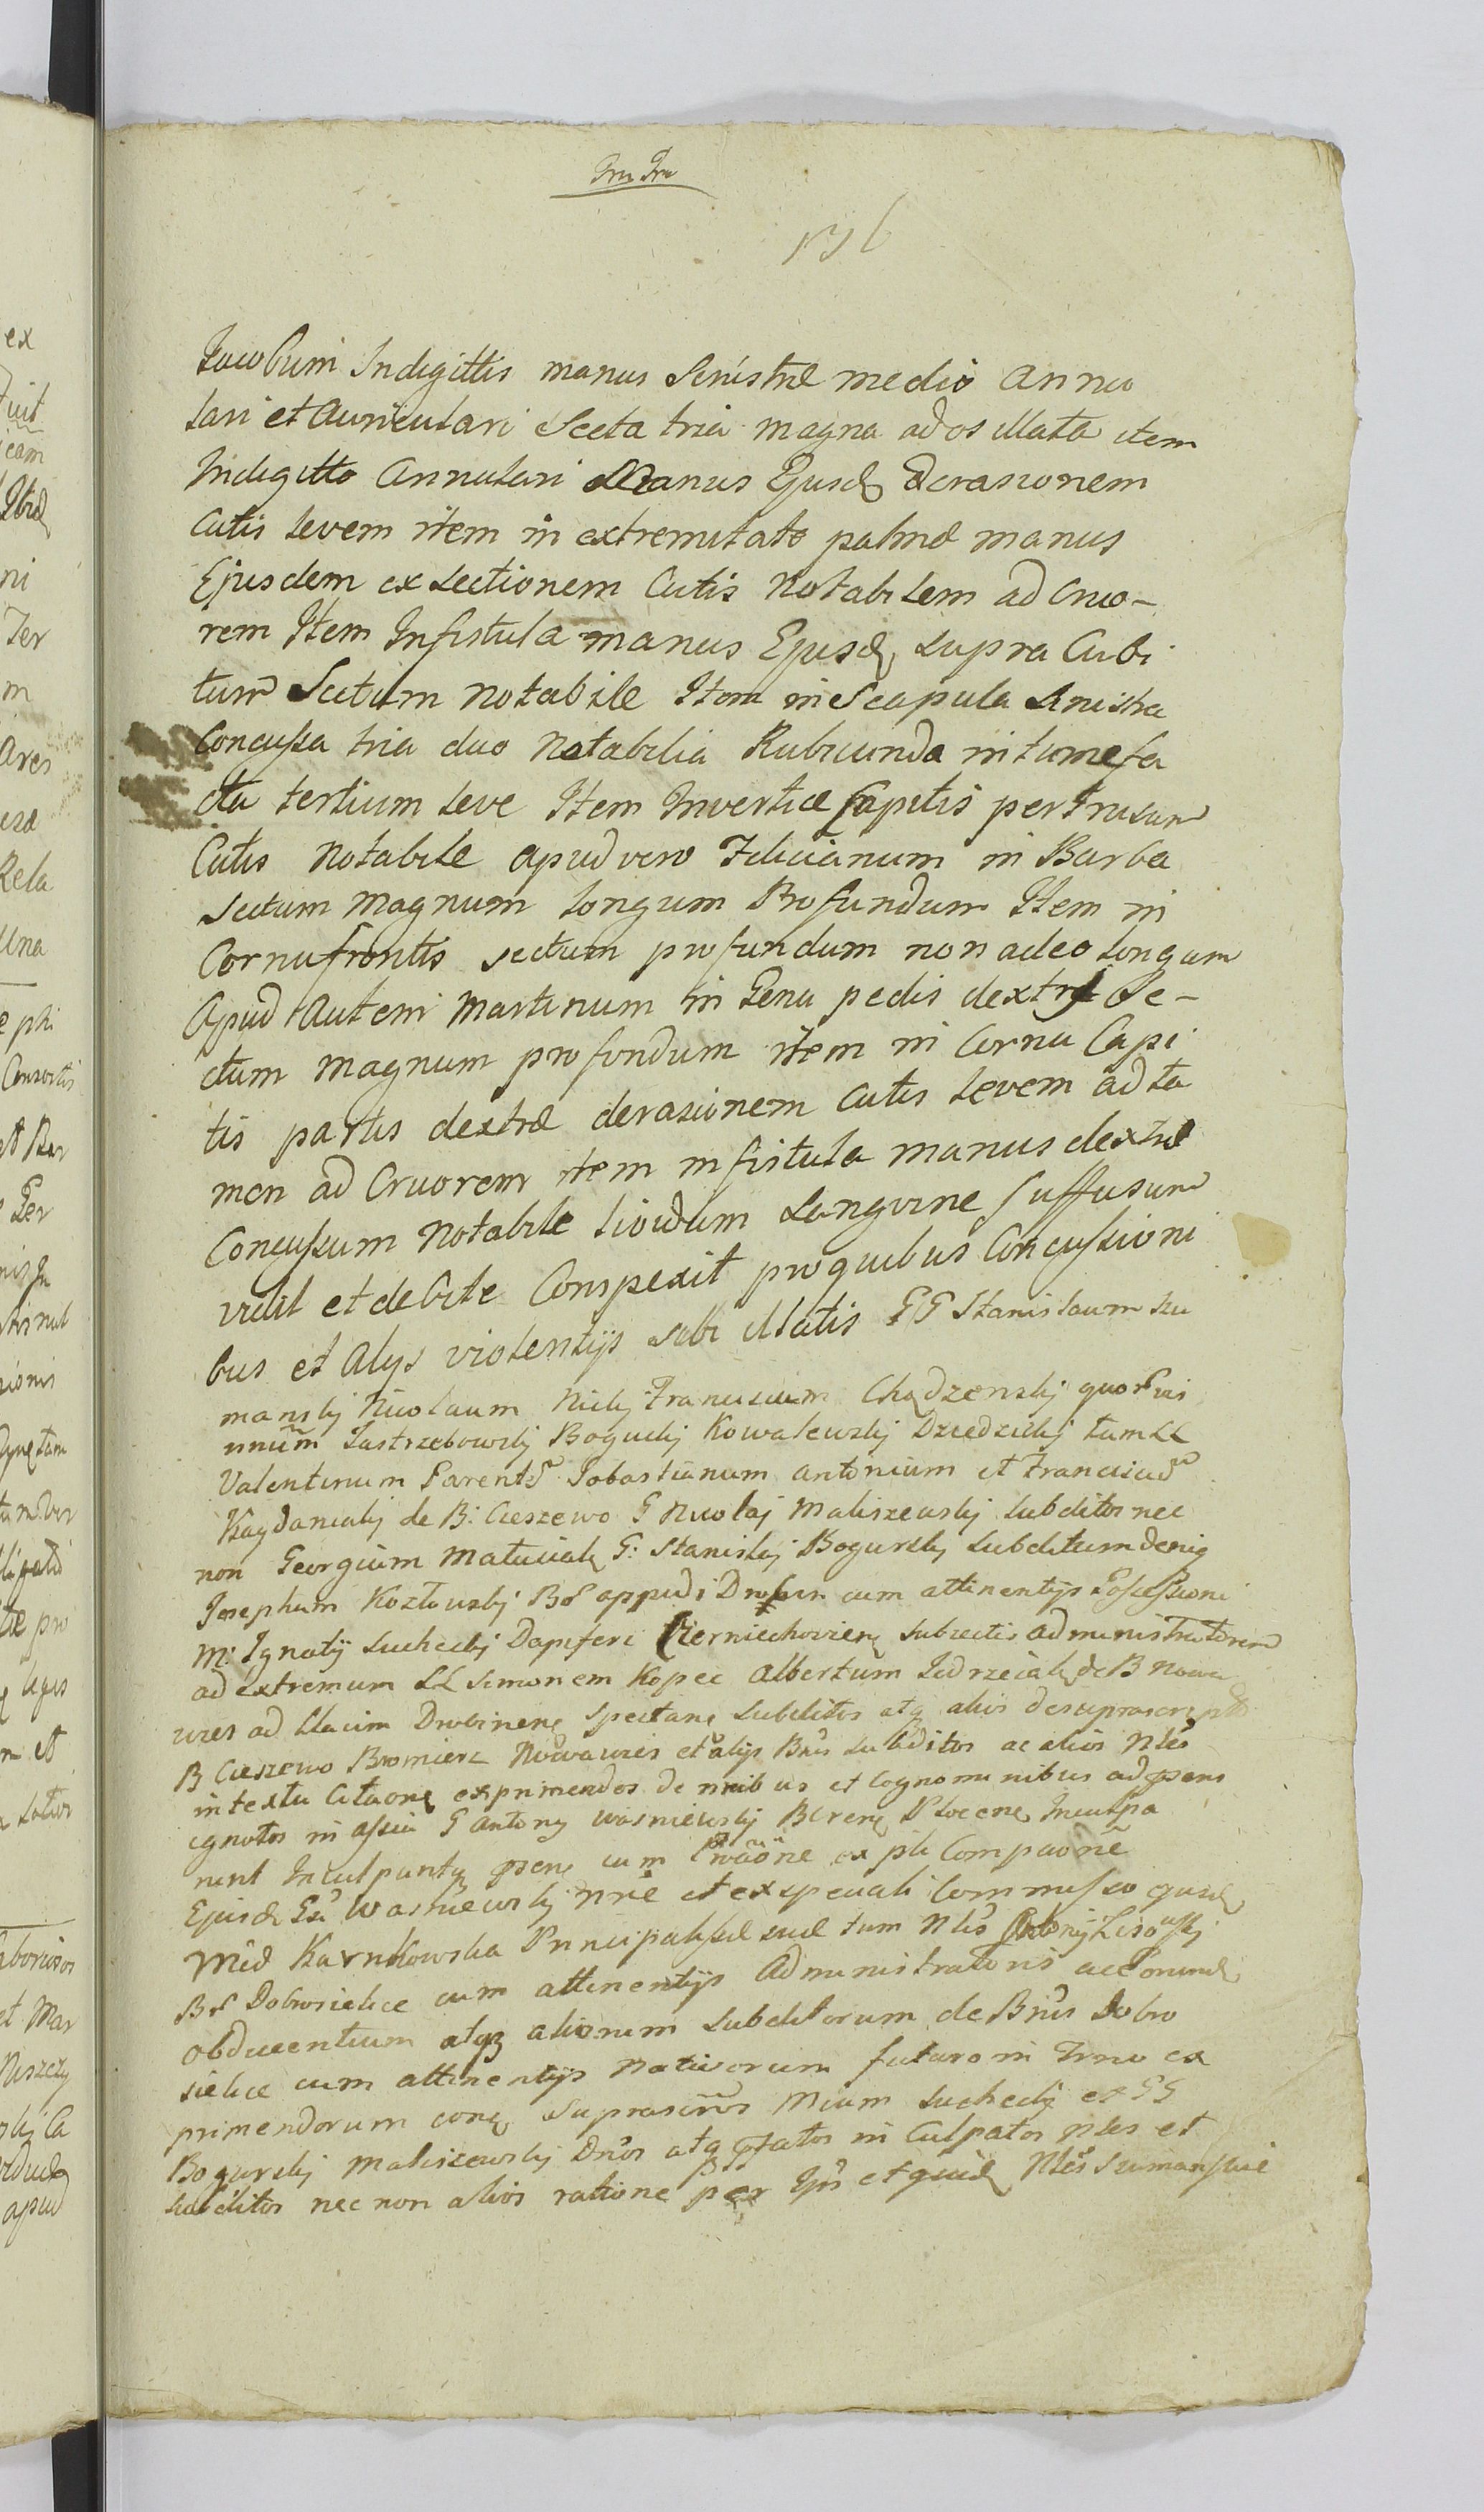 136
Jacobum Indigittis manus Sinistræ medio annu
lari et Auriculari Secta tria magna ad os illata item
Indigitto Annulari Manus Ejusd derasionem
Cutis levem item in extremitate palmæ manus
Ejusdem exsectionem Cutis Notabilem ad Cruo-
rem Item Infistula manus Ejusd supra Cubi
tum Sectum notabile Item in Scapula Sinistra
Concussa tria duo Notabilia Rubicunda intumefa
cta tertium leve Item Invertice Capitis pertrusum
Cutis Notabile apud vero Felicianum in Barba
Sectum Magnum longum Profundum Item in
Cornufrontis sectum profundum non adeo longum
Apud Autem Martinum in Genu pedis dextri Se-
ctum magnum profundum item in Cornu Capi
tis partis dextræ derasionem cutis levem adta
men ad Cruorem item in fistula manus dextræ
Concussum Notabile lividum Sanguine Suffusum
vidit et debite Conspexit proquibus Concussioni
bus et Alys violentijs sibi illatis GG Stanislaum Szu
manskj Nicolaum Nickj Franciscum Chądzenskj quorvis
unum Jastrzebowskj Boguckj Kowalewskj Dziedzickj tum LL
Valentinum Parente Sobastianum antonium et Franciscu
de B: Cieszewo G Nicolaj Maliszewskj Subditos nec
non Georgium Matusiak G: Stanislaj Bogurskj Subditum deniq
Josephum Kozłowskj Br oppidi Drobin cum attinentijs Possessioni
M: Ignatij Sucheckj Dapiferi Czerniechovien subiectis administratorem
ad extremum LL Simonem Kopec Albertum Jedrzeiak de B Nowa
wies ad Drobinen Spectan Subditos atq alios de suprascriptis
B Cieszewo Bromierz Nowawies et alijs Bnis subditos ac alios Nles
in textu Citaone exprimendos de nnibus et Cognominibus ad psens
ignotos in assia G Antony Wasniewskj Bcrene Plocene Inculpa
runt Inculpantq psens cum pli Comparone
Ejusd Gsi Wasniewskj nne et ex speciali Commisso
Karnkowska Principalisse suæ tum Nlis
Br Dobrosielice cum attinentijs Administratoris
obducentium atqz aliorum Subditorum de Bnis Dobro
sielice cum attinentijs Nativorum futuro in Trno ex
primendorum cone suprascros Mcum Suchecki et GG
Bogurskj Maliszewskj Dnos atq pfatos in Culpatos Nles et
subditos nec non alios ratione per Ipsi et quid Nles Szumanskie